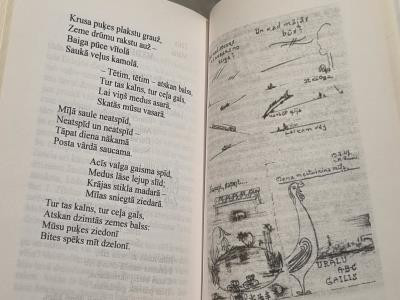 Krusa puķes plakstu grauž,
Zeme drūmu rakstu auž –
Baiga pūce vītolā
Saukā veļus kamolā.
– Tētim, tētim – atskan balss,
Tur tas kalns, tur ceļa gals,
Lai viņš medus asarā,
Skatās mūsu vasarā.
Mīļā saule neatspīd,
Neatspīd un neatspīd –
Tāpat diena nākamā
Posta vārdā saucama.
Acīs valga gaisma spīd,
Medus lāse lejup slīd;
Krājas stikla madarā –
Mīlas sniegtā ziedarā.
Tur tas kalns, tur ceļa gals,
Atskan dzimtās zemes balss:
Mūsu puķes ziedonī
Bites spēks mīt dzelonī.
Un kad mājās
būs?
URALU
ABC
GAILIS